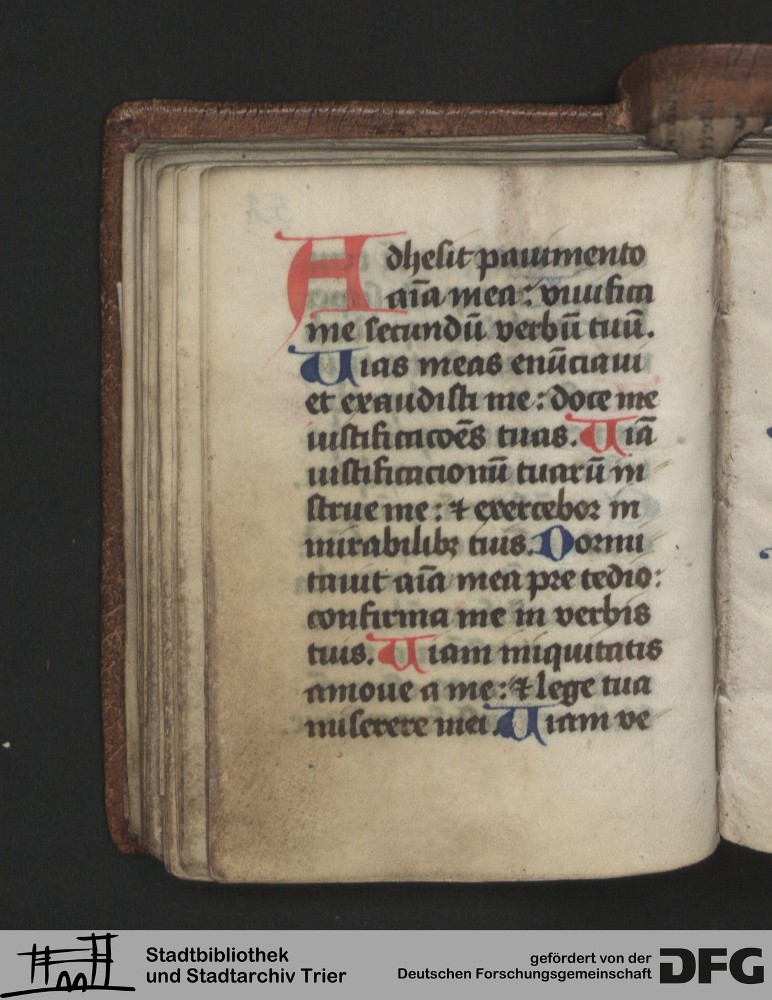 Adhesit pauimento
aīa mea: viuifica
me secundū verbū tuū.
Uias meas enūciaui
et exaudisti me: doce me
iustificacōēs tuas. Uiā
iustificacionū tuarū in
strue me: ⁊ exercebor in
mirabilibꝫ tuis. Dormi
tauit aīa mea pre tedio:
confirma me in verbis
tuis. Uiam iniquitatis
amoue a me: ⁊ lege tua
miserere mei. Uiam ve
Stadtbibliothek
und Stadtarchiv Trier
gefördert von der
Deutschen Forschungsgemeinschaft
DFG